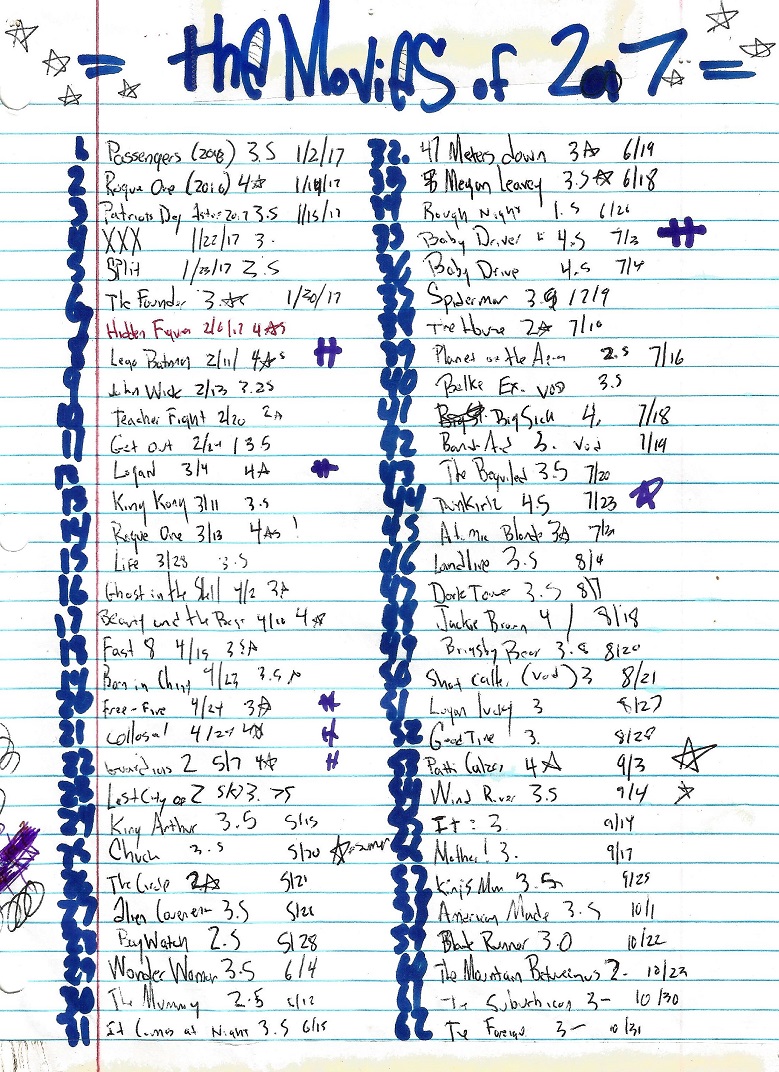 = the Movies of 2017 =
1 Passengers (2016) 3.5 1/2/17
2 Rogue One (2016) 4☆ 1/14/17
3 Patriots Day 3.5 1/15/17
4 XXX 1/22/17 3.
5 Split 1/23/17 2.5
6 The Founder 3.☆s 1/30/17
7 Hidden Figures 2/6/17 4☆s
8 Lego Batman 2/11/ 4☆s #
9 John Wick 2/13 3.25
10 Teacher Fight 2/20 2☆
11 Get out 2/24 / 3 5
12 Logan 3/4 4☆ #
13 King Kong 3/11 3.5
14 Rogue One 3/13 4☆s !
15 Life 3/28 3.5
16 Ghost in the Shell 4/2 3☆
17 Beauty and the Beast 4/10 4☆
18 Fast 8 4/15 3.5☆
19 Born in China 4/23 3.5☆
20 Free-Fire 4/24 3☆ #
21 Collosal 4/24 4☆ #
22 Guardians 2 5/7 4☆ #
23 Lost City of Z 3.75
24 King Arthur 3.5 5/15
25 Chuck 3.5 5/20 ☆
26 The Circle 2☆ 5/21
27 Alien Covenent 3.5
28 BayWatch 2.5 5/28
29 Wonder Woman 3.5 6/4
30 The Mummy 2.5 6/12
31 It Comes at Night 3.5 6/15
32. 47 Meters down 3☆ 6/19
33 Megan Leavey 3.5☆ 6/18
34 Rough Night 1.5 6/26
35 Baby Driver 4.5 7/3 #
36 Baby Drive 4.5 7/4
37 Spiderman 3.9 / 7/9
38 The House 2☆ 7/10
39 Planet of the Apes 2.5 7/16
40 Belko Ex. VOD 3.5
41 Big Sick 4. 7/18
42 Band Aid 3. Vod 7/19
43 The Beguiled 3.5 7/20
44 Dunkirk 4.5 7/23 ☆
45 Atomic Blonde 3☆
46 Landline 3.5 8/4
47 Dark Tower 3.5 8/7
48 Jackie Brown 4 / 8/18
49 Brigsby Bear 3.8 8/20
50 Shot Caller (Vod) 3 8/21
51 Logan lucky 3 8/27
52 Good Time 3. 8/28
53 Patti Cakes 4☆ 9/3 ☆
54 Wind River 3.5 9/4 ☆
55 It : 3. 9/14
56 Mother! 3. 9/17
57 Kings Man 3.5 9/25
58 American Made 3.5 10/1
59 Blade Runner 3.0 10/22
60 The Mountain Between us 2- 10/23
61 The Suburbicon 3- 10/30
62 The Foreign 3- 10/31